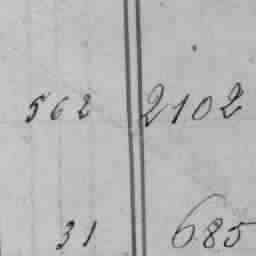 562 2102
31 685